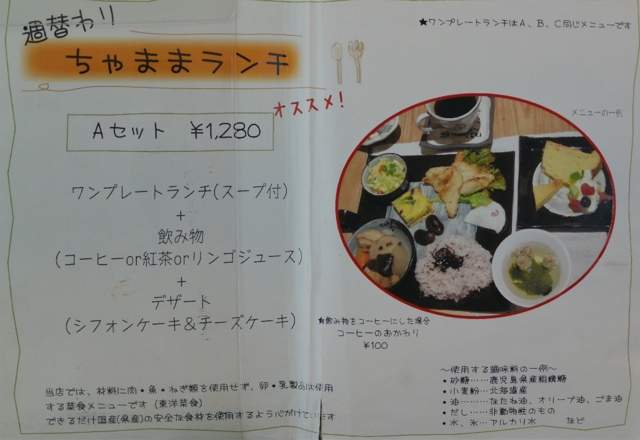 週替わり
ちゃままランチ
★ワンプレートランチはA、B、C同じメニューです
オススメ!
メニューの一例
Aセット ¥1,280
ワンプレートランチ(スープ付)
+
飲み物
(コーヒーor紅茶orリンゴジュース)
+
デザート
(シフォンケーキ&チーズケーキ)
★飲み物をコーヒーにした場合
コーヒーのおかわり
¥100
当店では、材料に肉・魚・ねぎ類を使用せず、卵・乳製品は使用
する菜食メニューです (東洋菜食)
できるだけ国産(県産)の安全な食材を使用するよう心がけています
～使用する調味料の一例～
・砂糖……鹿児島県産粗糖
・小麦粉…北海道産
・油………なたね油、オリーブ油、ごま油
・だし……非動物性のもの
・水、氷…アルカリ水 など